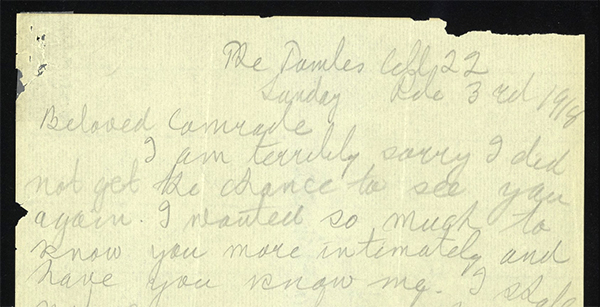 The Tombs Cell 22
Sunday 3rd 1918
Beloved Comrade
I am terribly sorry I did
not get the chance to see you
again. I wanted so much to
know you more intimately and
have you know me. I